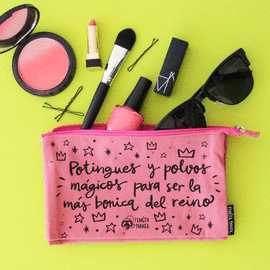 NARS
Potingues y polvos
mágicos para ser la
más bonica del reino